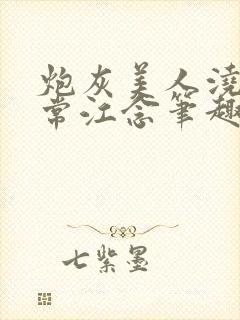 炮灰美人浇
常江念笔趣
七紫墨